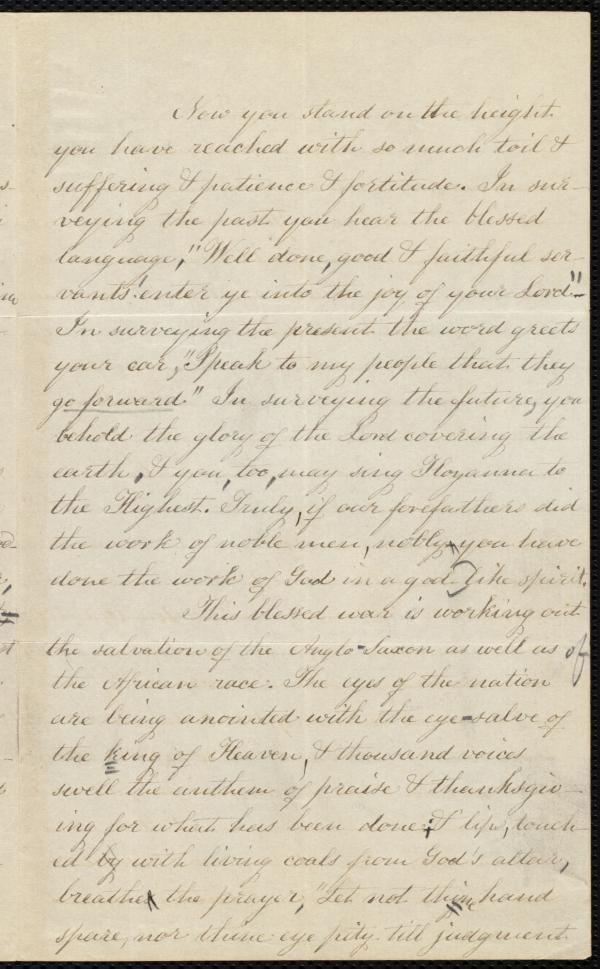 Now you stand on the height
you have reached with so much toil &
suffering & patience & fortitude. In sur-
veying the past you hear the blessed
language, "Well done, good & faithful ser-
vants! enter ye into the joy of your Lord"-
In surveying the present the word greets
your ear, "Speak to my people that they
go forward." In surveying the future, you
behold the glory of the Lord covering the
earth, & you, too, may sing Hozanna to
the Highest. Truly, if our forefathers did
the work of noble men, nobly, you have
done the work of God in a god-like spirit.
This blessed war is working out
the salvation of the Anglo-Saxon as well as of
the African race. The eyes of the nation
are being anointed with the eye-salve of
the king of Heaven, & thousand voices
swell the anthem of praise & thanksgiv-
ing for what has been done; & lips, touch-
ed by with living coals from God's altar,
breathe the prayer, "Let not thine hand
spare, nor thine eye pity till judgment